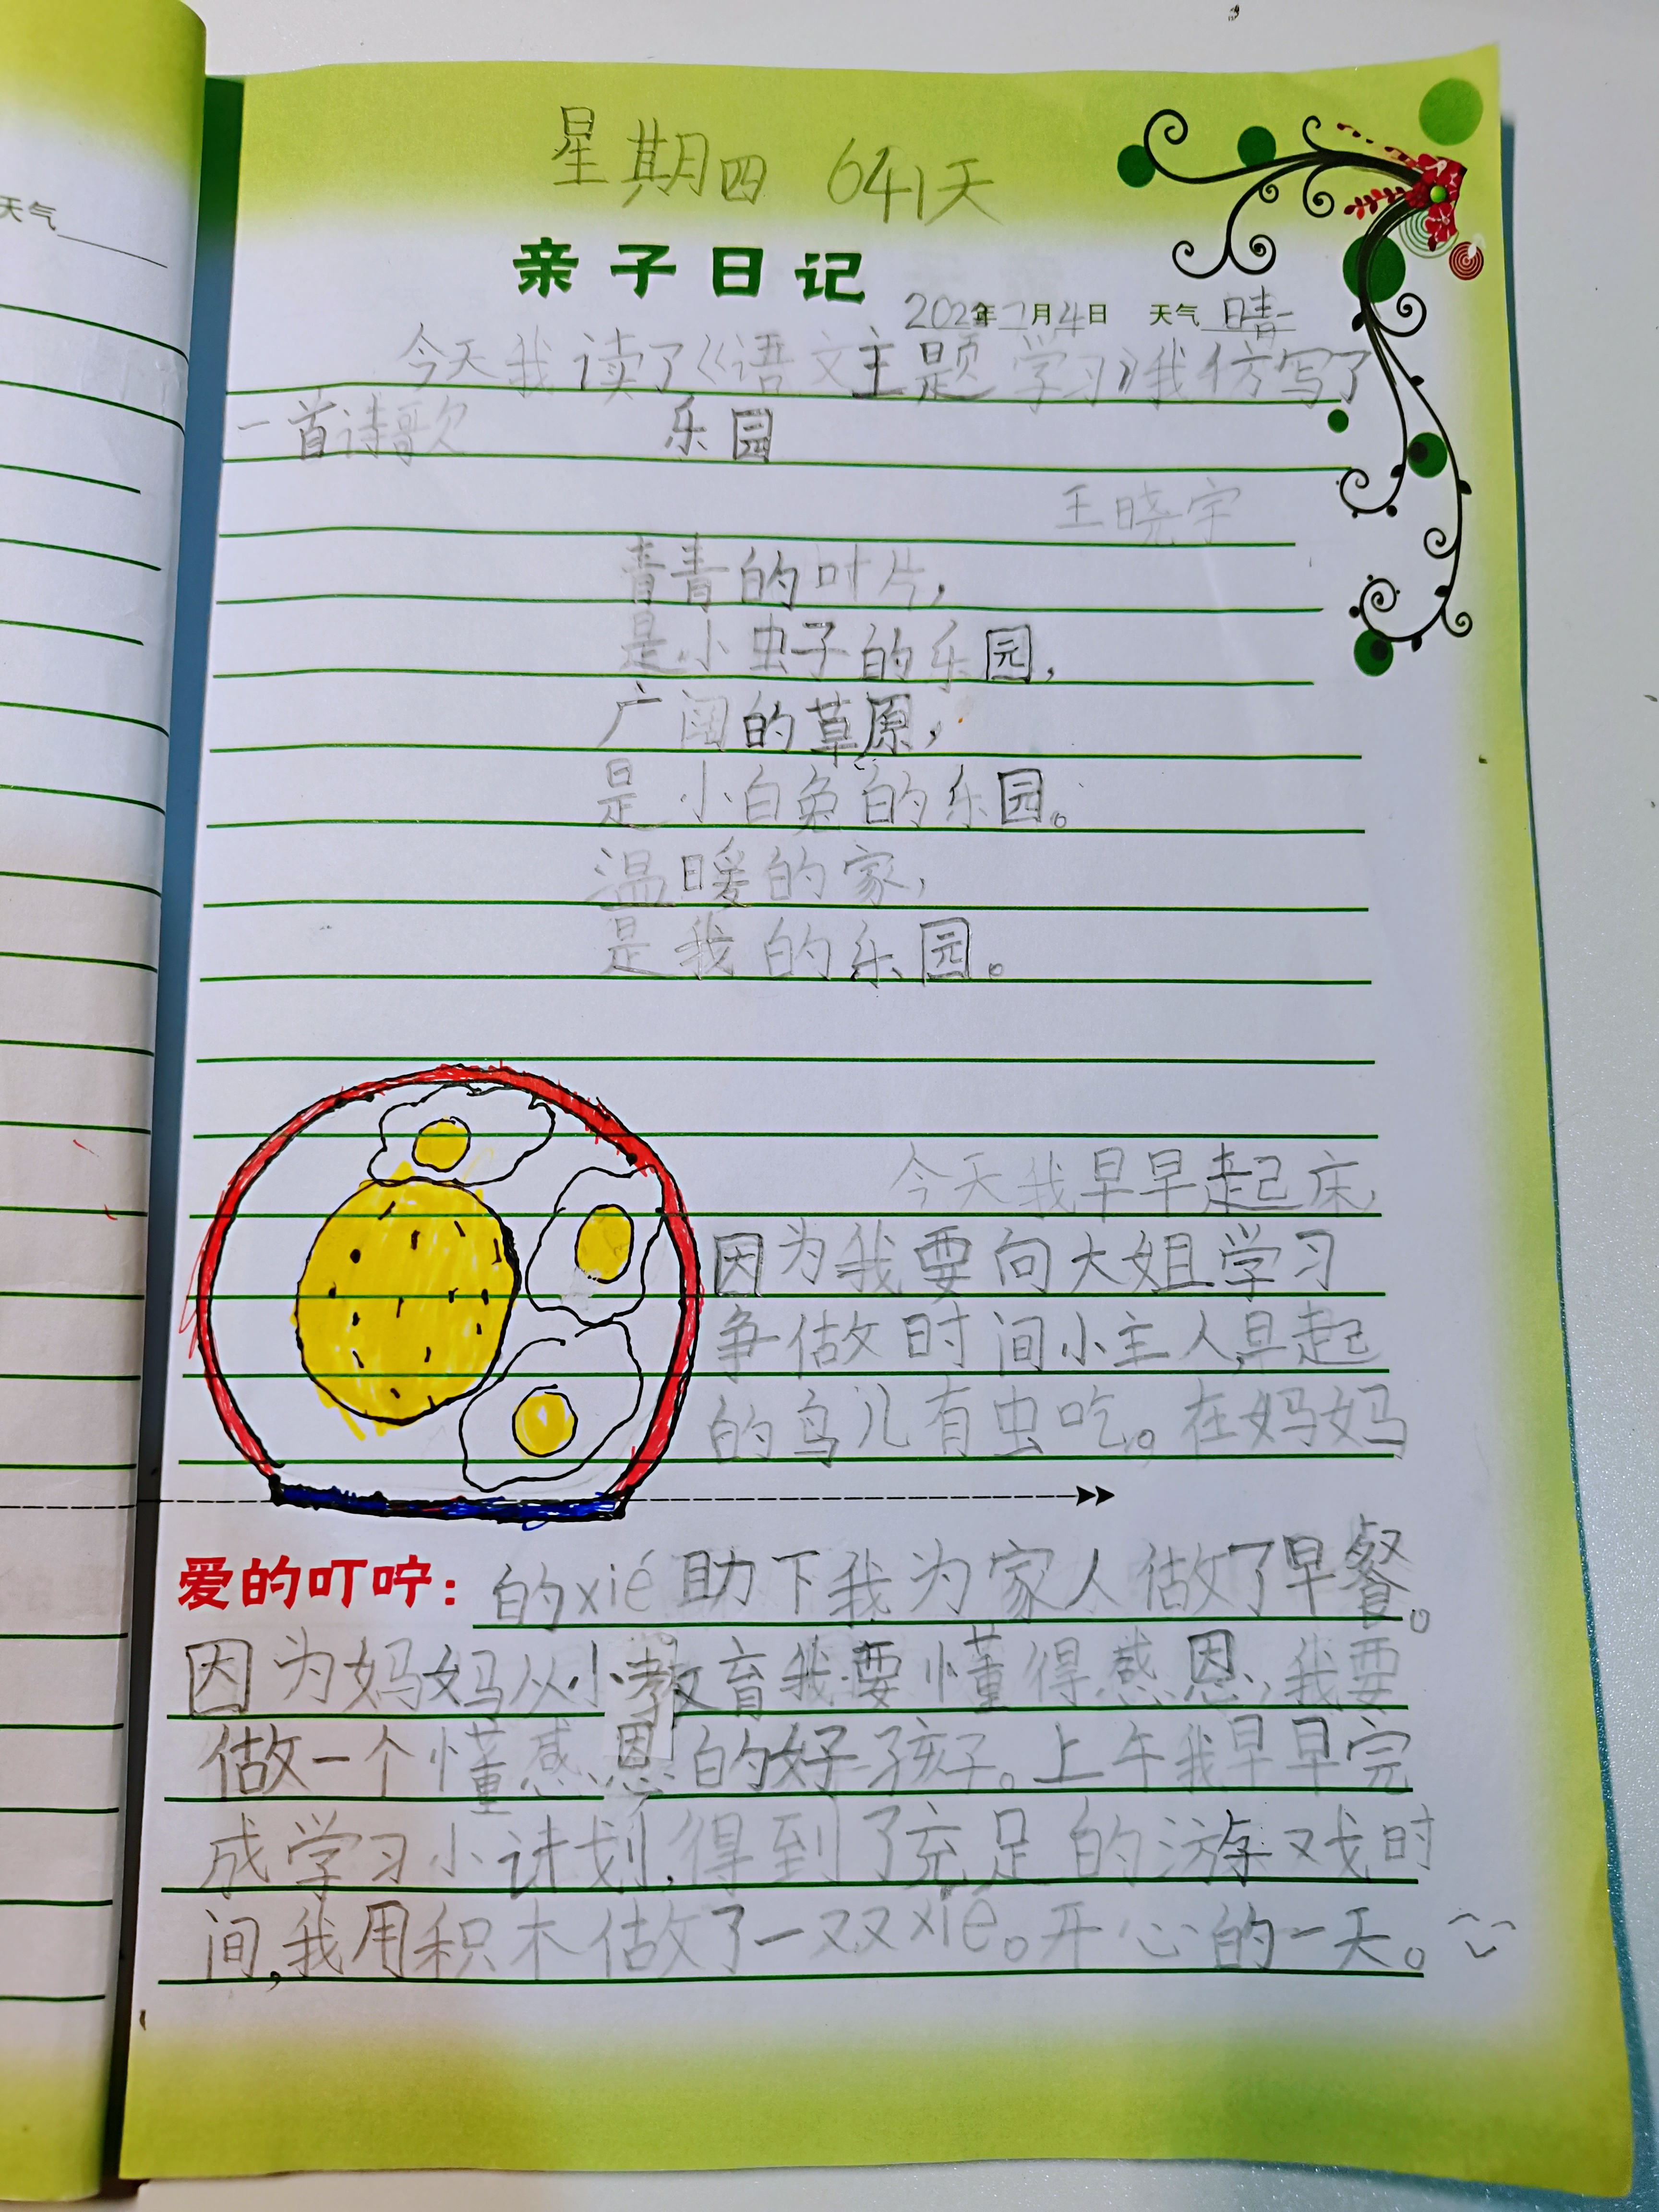 天气
星期四 641天
亲子日记
年 月4日 天气 晴
今天我读了《语文主题学习》我仿写了
一首诗歌 乐园
王晓宇
青青的叶片，
是小虫子的乐园，
广阔的草原，
是小白兔的乐园。
温暖的家，
是我的乐园。
今天我早早起床，
因为我要向大姐学习
争做时间小主人,早起
的鸟儿有虫吃。在妈妈
爱的叮咛：的xié助下我为家人做了早餐。
因为妈妈从小教育我要懂得感恩，我要
做一个懂感恩的好孩子。上午我早早完
成学习小计划,得到了充足的游戏时
间,我用积木做了一双xié。开心的一天。